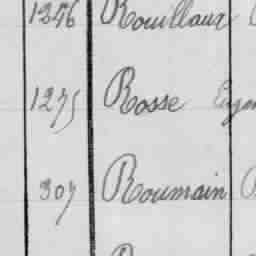 1276 Rouillaux
1275 Rosse
307 Roumain